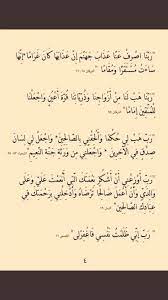 "رَبَّنَا اصْرِفْ عَنَّا عَذَابَ جَهَنَّمَ إِنَّ عَذَابَهَا كَانَ غَرَامًا*إِنَّهَا
سَاءَتْ مُسْتَقَرًّا وَمُقَامًا"
"رَبَّنَا هَبْ لَنَا مِنْ أَزْوَاجِنَا وَذُرِّيَّاتِنَا قُرَّةَ أَعْيُنٍ وَاجْعَلْنَا
لِلْمُتَّقِينَ إِمَامًا"
"رَبِّ هَبْ لِي حُكْمًا وَأَلْحِقْنِي بِالصَّالِحِينَ* وَاجْعَلْ لِي لِسَانَ
صِدْقٍ فِي الْآخِرِينَ* وَاجْعَلْنِي مِنْ وَرَثَةِ جَنَّةِ النَّعِيمِ"
"رَبِّ أَوْزِعْنِي أَنْ أَشْكُرَ نِعْمَتَكَ الَّتِي أَنْعَمْتَ عَلَيَّ وَعَلَى
وَالِدَيَّ وَأَنْ أَعْمَلَ صَالِحًا تَرْضَاهُ وَأَدْخِلْنِي بِرَحْمَتِكَ فِي
عِبَادِكَ الصَّالِحِينَ"
"رَبِّ إِنِّي ظَلَمْتُ نَفْسِي فَاغْفِرْ لِي"
٤